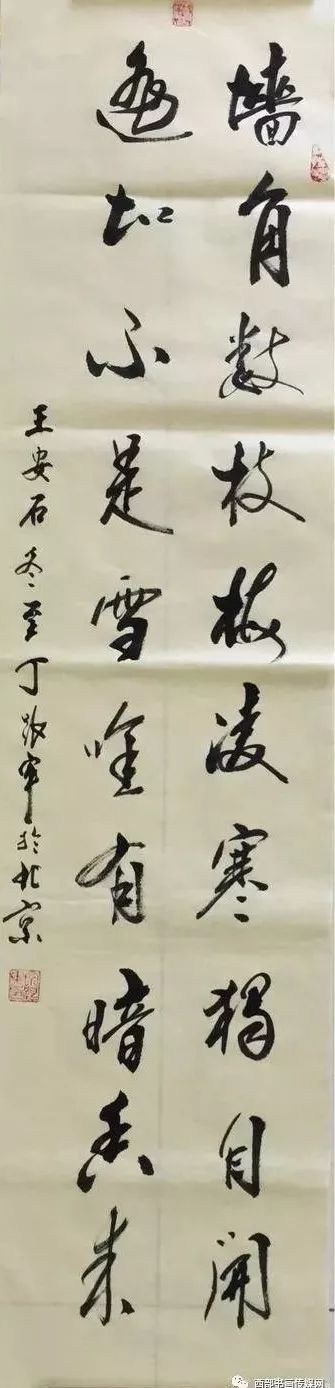 墻角数枝梅凌寒獨自開
遥知不是雪唯有暗香来
王安石冬至丁军於北京
西部书画传媒网